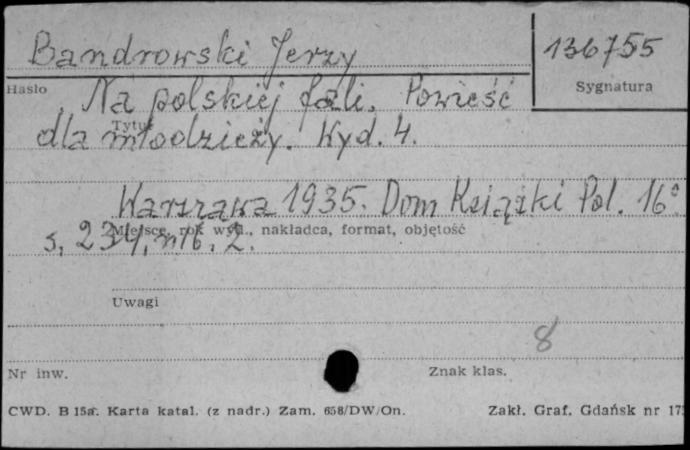 Bandrowski Jerzy
136755
Hasło
Sygnatura
Na polskiej fali. Powieść
Tytuł
dla młodzieży. Wyd. 4.
Warszawa 1935. Dom Książki Pol. 16°
s. 234, nlb. 2.
Miejsce, rok wyd., nakładca, format, objętość
Uwagi
8
Nr inw.
Znak klas.
CWD. B 15a. Karta katal. (z nadr.) Zam. 658/DW/On.
Zakł. Graf. Gdańsk nr